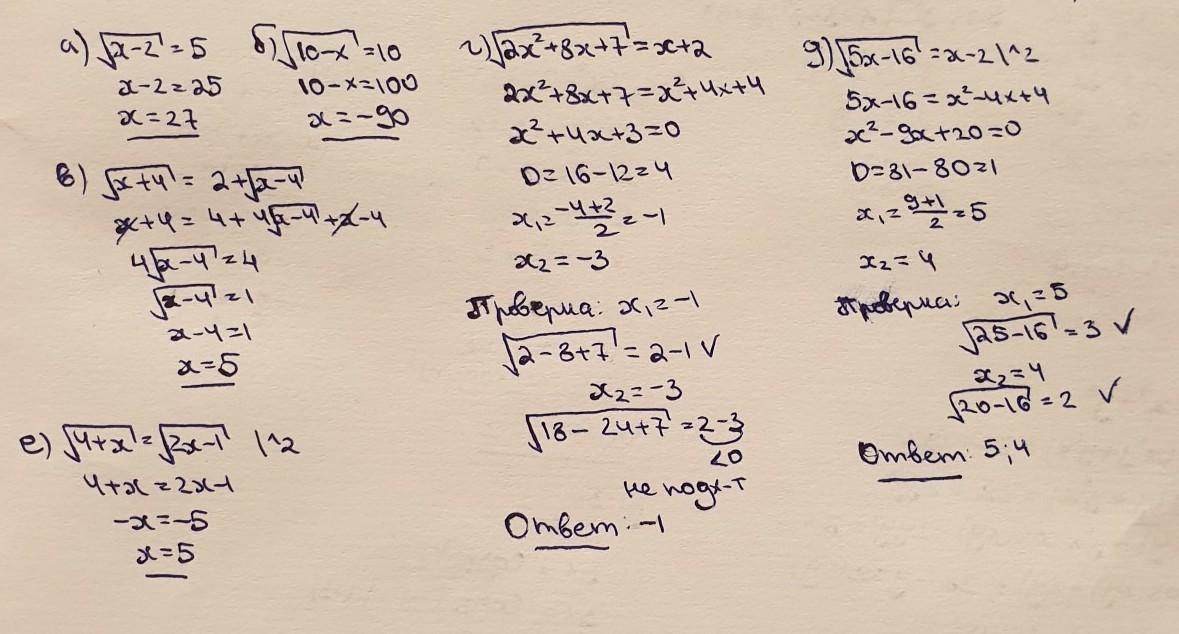 а) √(x-2) = 5
x-2=25
x=27
б) √(10-x) =10
10-x=100
x=-90
в) √(x+4) = 2+√(x-4)
x+4= 4+ 4√(x-4) +x-4
4√(x-4) =4
√(x-4) =1
x-4=1
x=5
е) √(4+x) = √(2x-1) |^2
4+x=2x-1
-x=-5
x=5
г) √(2x²+8x+7) =x+2
2x²+8x+7=x²+4x+4
x²+4x+3=0
D=16-12=4
x₁=(-4+2)/2=-1
x₂=-3
Проверка: x₁=-1
√(2-8+7) = 2-1 ✓
x₂=-3
√(18-24+7) =2-3
<0
не подх-т
Ответ: -1
д) √(5x-16) =x-2 |^2
5x-16=x²-4x+4
x²-9x+20=0
D=81-80=1
x₁=(9+1)/2=5
x₂=4
Проверка: x₁=5
√(25-16) =3 ✓
x₂=4
√(20-16) =2 ✓
Ответ: 5;4